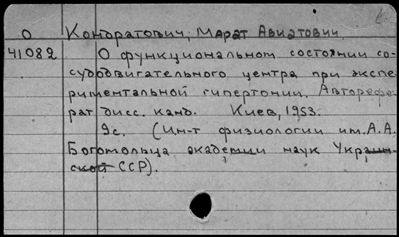 О Кондратович, Марат Авиэтович
41082 О функциональном состоянии со-
судодвигательного центра при экспе-
риментальной гипертонии. Авторефе-
рат дисс. канд. Киев, 1953.
9с. (Ин-т физиологии им. А.А.
Богомольца академии наук Украин-
ской ССР).